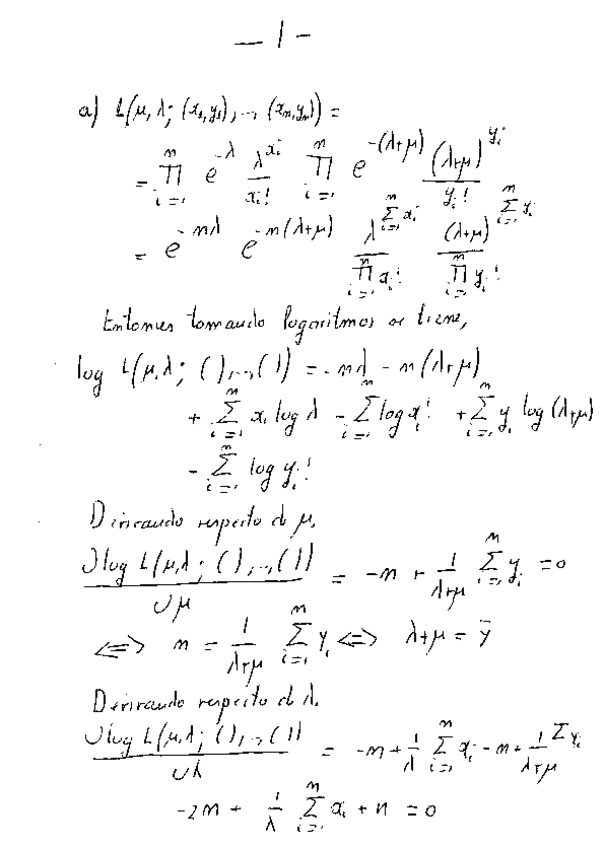 — 1 —
a) L(μ, λ; (x₁,y₁), .., (xₙ,yₙ)) =
= ∏_{i=1}^{n} e^{-λ} λ^{xᵢ}/xᵢ! ∏_{i=1}^{n} e^{-(λ+μ)} (λ+μ)^{yᵢ}/yᵢ!
= e^{-nλ} e^{-n(λ+μ)} λ^{∑_{i=1}^{n} xᵢ}/∏_{i=1}^{n} xᵢ! (λ+μ)^{∑_{i=1}^{n} yᵢ}/∏_{i=1}^{n} yᵢ!
Entonces tomando logaritmos se tiene,
log L(μ,λ; ( ), .., ( )) = -nλ - n(λ+μ)
+ ∑_{i=1}^{n} xᵢ log λ - ∑_{i=1}^{n} log xᵢ! + ∑_{i=1}^{n} yᵢ log (λ+μ)
- ∑_{i=1}^{n} log yᵢ!
Derivando respecto de μ,
∂log L(μ,λ; ( ), .., ( ))/∂μ = -n + 1/(λ+μ) ∑_{i=1}^{n} yᵢ = 0
<=> n = 1/(λ+μ) ∑_{i=1}^{n} yᵢ <=> λ+μ = ȳ
Derivando respecto de λ,
∂log L(μ,λ; ( ), .., ( ))/∂λ = -n + 1/λ ∑_{i=1}^{n} xᵢ - n + 1/(λ+μ) ∑ yᵢ
-2n + 1/λ ∑_{i=1}^{n} xᵢ + n = 0